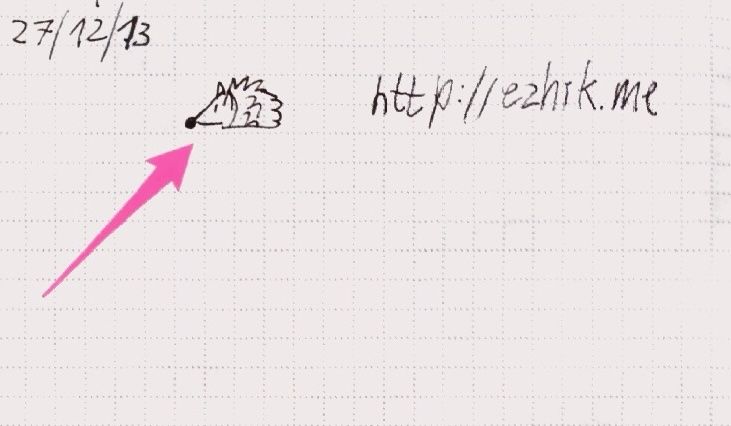 27/12/13
http://ezhik.me